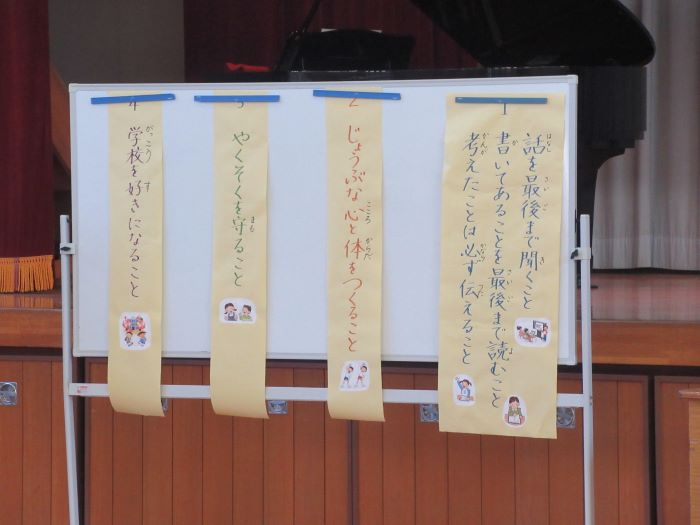 1
話を最後まで聞くこと
書いてあることを最後まで読むこと
考えたことは必ず伝えること
2
じょうぶな心と体をつくること
3
やくそくを守ること
4
学校を好きになること